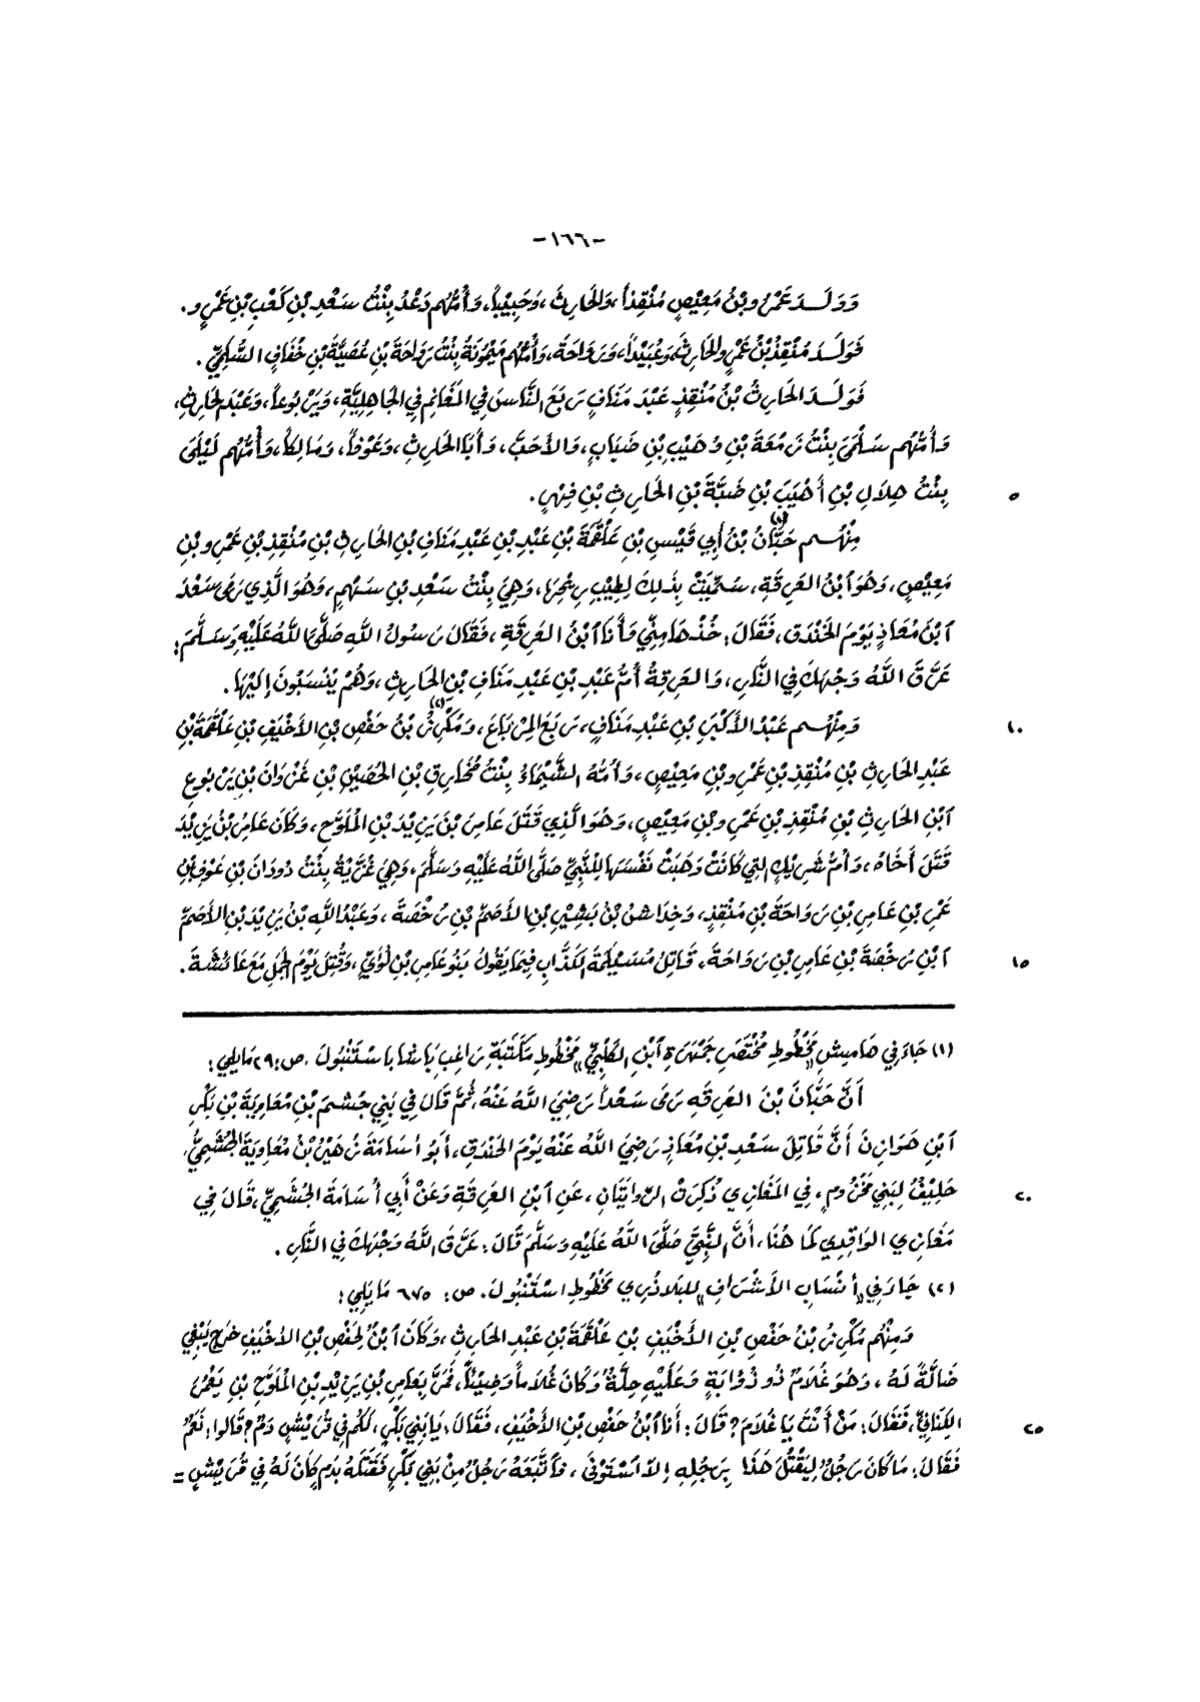 -١٦٦-
وَوَلَـدَ عَمْرُو بْنُ مَعِيْصٍ مُنْقِذاً، وَالحَارِثَ، وَحَبِيْباً، وَأُمُّهُم دَعْدُ بِنْتُ سَعْدِ بْنِ كَعْبِ بْنِ عَمْرٍو.
فَوَلَـدَ مُنْقِذُ بْنُ عَمْرٍو الحَارِثَ، وَعُبَيْداً، وَرَوَاحَةَ، وَأُمُّهُم مَيْمُونَةُ بِنْتُ رَوَاحَةَ بْنِ عُصَيَّةَ بْنِ خُفَافٍ السُّلَمِيِّ.
فَوَلَـدَ الحَارِثُ بْنُ مُنْقِذٍ عَبْدَ مَنَافٍ رَبَعَ النَّاسَ فِي المَغَانِمِ فِي الجَاهِلِيَّةِ، وَيَرْبُوعاً، وَعَبْدَ الحَارِثِ،
وَأُمُّهُم سَلْمَىَ بِنْتُ زَمْعَةَ بْنِ وُهَيْبِ بْنِ ضَبَابٍ، وَالأَحَبَّ، وَأَبَا الحَارِثِ، وَعَوْفاً، وَمَالِكاً، وَأُمُّهُم لَيْلَىَ
بِنْتُ هِلَالِ بْنِ أُهَيَبَ بْنِ ضَبَّةَ بْنِ الحَارِثِ بْنِ فِهْرٍ. ٥
مِنْهُـم حَبَّانُ(١) بْنُ أَبِي قَيْسِ بْنِ عَلْقَمَةَ بْنِ عَبْدِ بْنِ عَبْدِ مَنَافِ بْنِ الحَارِثِ بْنِ مُنْقِذِ بْنِ عَمْرِو بْنِ
مَعِيْصٍ، وَهُوَ ابْنُ العَرِقَةِ، سُمِّيَتْ بِذَلِكَ لِطِيْبِ رِيْحِهَا، وَهِيَ بِنْتُ سَعْدِ بْنِ سَهْمٍ، وَهُوَ الَّذِي رَمَىَ سَعْدَ
ابْنَ مُعَاذٍ يَوْمَ الخَنْدَقِ، فَقَالَ: خُذْهَا مِنِّي وَأَنَا ابْنُ العَرِقَةِ، فَقَالَ رَسُولُ اللَّهِ صَلَّىَ اللَّهُ عَلَيْهِ وَسَـلَّمَ:
عَرَّقَ اللَّهُ وَجْهَكَ فِي النَّارِ، وَالعَرِقَةُ أُمُّ عَبْدِ بْنِ عَبْدِ مَنَافِ بْنِ الحَارِثِ، وَهُمْ يُنْسَبُونَ إِلَيْهَا.
وَمِنْهُـم عَبْدُ الأَكْبَرِ بْنِ عَبْدِ مَنَافٍ، رَبَعَ المِرْبَاعَ، وَمِكْرَزُ(٢) بْنُ حَفْصِ بْنِ الأَخْيَفِ بْنِ عَلْقَمَةَ بْنِ ١٠
عَبْدِ الحَارِثِ بْنِ مُنْقِذِ بْنِ عَمْرِو بْنِ مَعِيْصٍ، وَأُمُّهُ الشَّيْمَاءُ بِنْتُ مُخَارِقِ بْنِ الحُصَيْنِ بْنِ غَزْوَانَ بْنِ يَرْبُوعِ
ابْنِ الحَارِثِ بْنِ مُنْقِذِ بْنِ عَمْرِو بْنِ مَعِيْصٍ، وَهُوَ الَّذِي قَتَلَ عَامِرَ بْنَ يَزِيْدَ بْنِ المُلَوَّحِ، وَكَانَ عَامِرُ بْنُ يَزِيْدَ
قَتَلَ أَخَاهُ، وَأُمُّ شَرِيْكٍ الَّتِي كَانَتْ وَهَبَتْ نَفْسَهَا لِلنَّبِيِّ صَلَّىَ اللَّهُ عَلَيْهِ وَسَلَّمَ، وَهِيَ غُزَيَّةُ بِنْتُ دُودَانَ بْنِ عَوْفِ بْنِ
عَمْرِو بْنِ عَامِرِ بْنِ رَوَاحَةَ بْنِ مُنْقِذٍ، وَخِدَاشُ بْنُ بَشِيْرِ بْنِ الأَصَمِّ بْنِ رَحْضَةَ، وَعَبْدُ اللَّهِ بْنُ يَزِيْدَ بْنِ الأَصَمِّ
ابْنِ رَحْضَةَ بْنِ عَامِرِ بْنِ رَوَاحَةَ، قَاتِلُ مُسَيْلِمَةَ الكَذَّابِ فِيمَا يَقُولُ بَنُو عَامِرِ بْنِ لُؤَيٍّ، وَقُتِلَ يَوْمَ الجَمَلِ مَعَ عَائشَةَ. ١٥
(١) جَاءَ فِي هَامِشِ «مَخْطُوطِ مُخْتَصَرِ جَمْهَرَةِ ابْنِ الكَلْبِيِّ» مَخْطُوطِ مَكْتَبَةِ رَاغِبْ بَاشَا بِاسْتَنْبُولَ. ص: ٢٩ مَايَلِي:
أَنَّ حَبَّانَ بْنَ العَرِقَةِ رَمَى سَعْداً رَضِيَ اللَّهُ عَنْهُ، ثُمَّ قَالَ فِي بَنِي جُشَمَ بْنِ مُعَاوِيَةَ بْنِ بَكْرِ
ابْنِ هَوَازِنَ أَنَّ قَاتِلَ سَعْدِ بْنِ مُعَاذٍ رَضِيَ اللَّهُ عَنْهُ يَوْمَ الخَنْدَقِ، أَبُو أُسَامَةَ زُهَيْرُ بْنُ مُعَاوِيَةَ الجُشَمِيُّ،
حَلِيْفٌ لِبَنِي مَخْزُومٍ، فِي المَغَازِي ذُكِرَتْ الرِّوَايَتَانِ، عَنِ ابْنِ العَرِقَةِ وَعَنْ أَبِي أُسَامَةَ الجُشَمِيِّ، قَالَ فِي ٢٠
مَغَازِي الوَاقِدِي كَمَا هُنَا، أَنَّ النَّبِيَّ صَلَّىَ اللَّهُ عَلَيْهِ وَسَلَّمَ قَالَ: عَرَّقَ اللَّهُ وَجْهَكَ فِي النَّارِ.
(٢) جَاءَ فِي «أَنْسَابِ الأَشْرَافِ» لِلبَلَاذُرِي مَخْطُوطِ اسْتَنْبُولَ. ص: ٦٧٥ مَا يَلِي:
وَمِنْهُم مِكْرَزُ بْنُ حَفْصِ بْنِ الأَخْيَفِ بْنِ عَلْقَمَةَ بْنِ عَبْدِ الحَارِثِ، وَكَانَ ابْنٌ لِحَفْصِ بْنِ الأَخْيَفِ خَرَجَ يَبْغِي
ضَالَّةً لَهُ، وَهُوَ غُلَامٌ ذُو ذُؤَابَةٍ وَعَلَيْهِ حُلَّةٌ وَكَانَ غُلَاماً وَضِيْئاً، فَمَرَّ بِعَامِرِ بْنِ يَزِيْدِ بْنِ المُلَوَّحِ بْنِ يَعْمُرَ
الكِنَانِيِّ، فَقَالَ: مَنْ أَنْتَ يَا غُلَامُ؟ قَالَ: أَنَا ابْنُ حَفْصِ بْنِ الأَخْيَفِ، فَقَالَ: يَا بَنِي بَكْرٍ، لَكُمْ فِي قُرَيْشٍ دَمٌ؟ قَالُوا: نَعَمْ ٢٥
فَقَالَ: مَا كَانَ رَجُلٌ لِيَقْتُلَ هَذَا بِرَجُلِهِ إِلَّا اسْتَوْفَىَ، فَاتَّبَعَهُ رَجُلٌ مِنْ بَنِي بَكْرٍ فَقَتَلَهُ بِدَمٍ كَانَ لَهُ فِي قُرَيْشٍ =